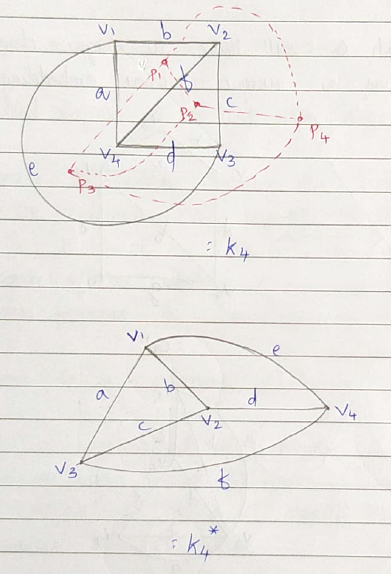 V1 b V2
P1 f
a P2 c P4
V4 d V3
e P3
: K4
V1 e
a b d
c V2 V4
V3 f
: K4*